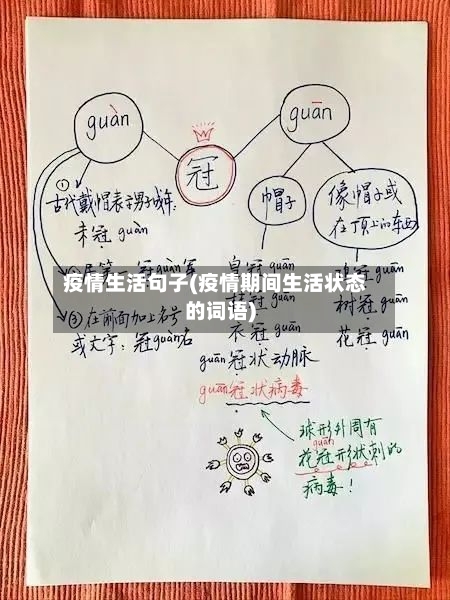 guàn
guān
冠
①
古代戴帽表示男子成年:
未冠 guàn
③在前面加上名号
或文字: 冠guàn名
帽子
衣冠
guān冠状动脉
guān冠状病毒
像帽子或
在顶上的东西
树冠 guān
花冠 guān
疫情生活句子(疫情期间生活状态
的词语)
球形外周有
guān
花冠形状刺的
病毒!